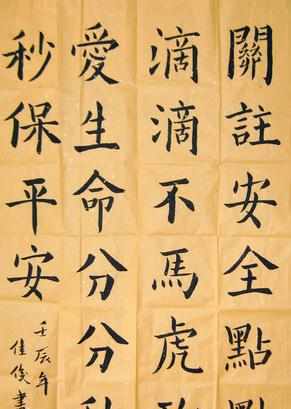 關註安全點點
滴滴不馬虎
愛生命分分秒
秒保平安
壬辰年
佳俊書